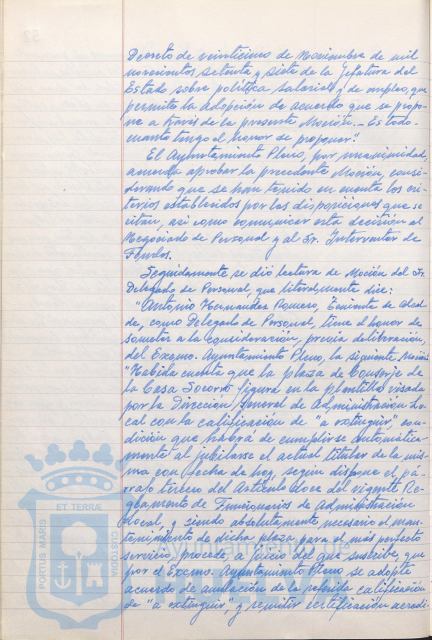 Decreto de veinticinco de Noviembre de mil
novecientos setenta y siete de la Jefatura del
Estado sobre política salarial y de empleo, que
permite la adopción de acuerdo que se propo-
ne a través de la presente Moción.- Es todo
cuanto tengo el honor de proponer".
El Ayuntamiento Pleno, por unanimidad,
acuerda aprobar la precedente Moción, consi-
derando que se han tenido en cuenta los cri-
terios establecidos por las disposiciones que se
citan, así como comunicar esta decisión al
Negociado de Personal y al Sr. Interventor de
Fondos.
Seguidamente se dió lectura de Moción del Sr.
Delegado de Personal, que literalmente dice:
"Antonio Hernández Romero, Teniente de Alcal-
de, como Delegado de Personal, tiene el honor de
someter a la consideración, previa deliberación,
del Excmo. Ayuntamiento Pleno, la siguiente Moción:
"Habida cuenta que la plaza de Conserje de
la Casa Socorro figura en la plantilla visada
por la Dirección General de Administración Lo-
cal con la calificación de "a extinguir", con-
dición que habrá de cumplirse automática-
mente al jubilarse el actual titular de la mis-
ma con fecha de hoy, según dispone el pá-
rrafo tercero del Artículo doce del vigente Re-
glamento de Funcionarios de Administración
Local, y siendo absolutamente necesario el man-
tenimiento de dicha plaza para el más perfecto
servicio, procede a juicio del que suscribe, que
por el Excmo. Ayuntamiento Pleno se adopte
acuerdo de anulación de la referida calificación
de "a extinguir" y remitir certificación acredi-
PORTUS MARIS
ET TERRAE
CUSTODIA